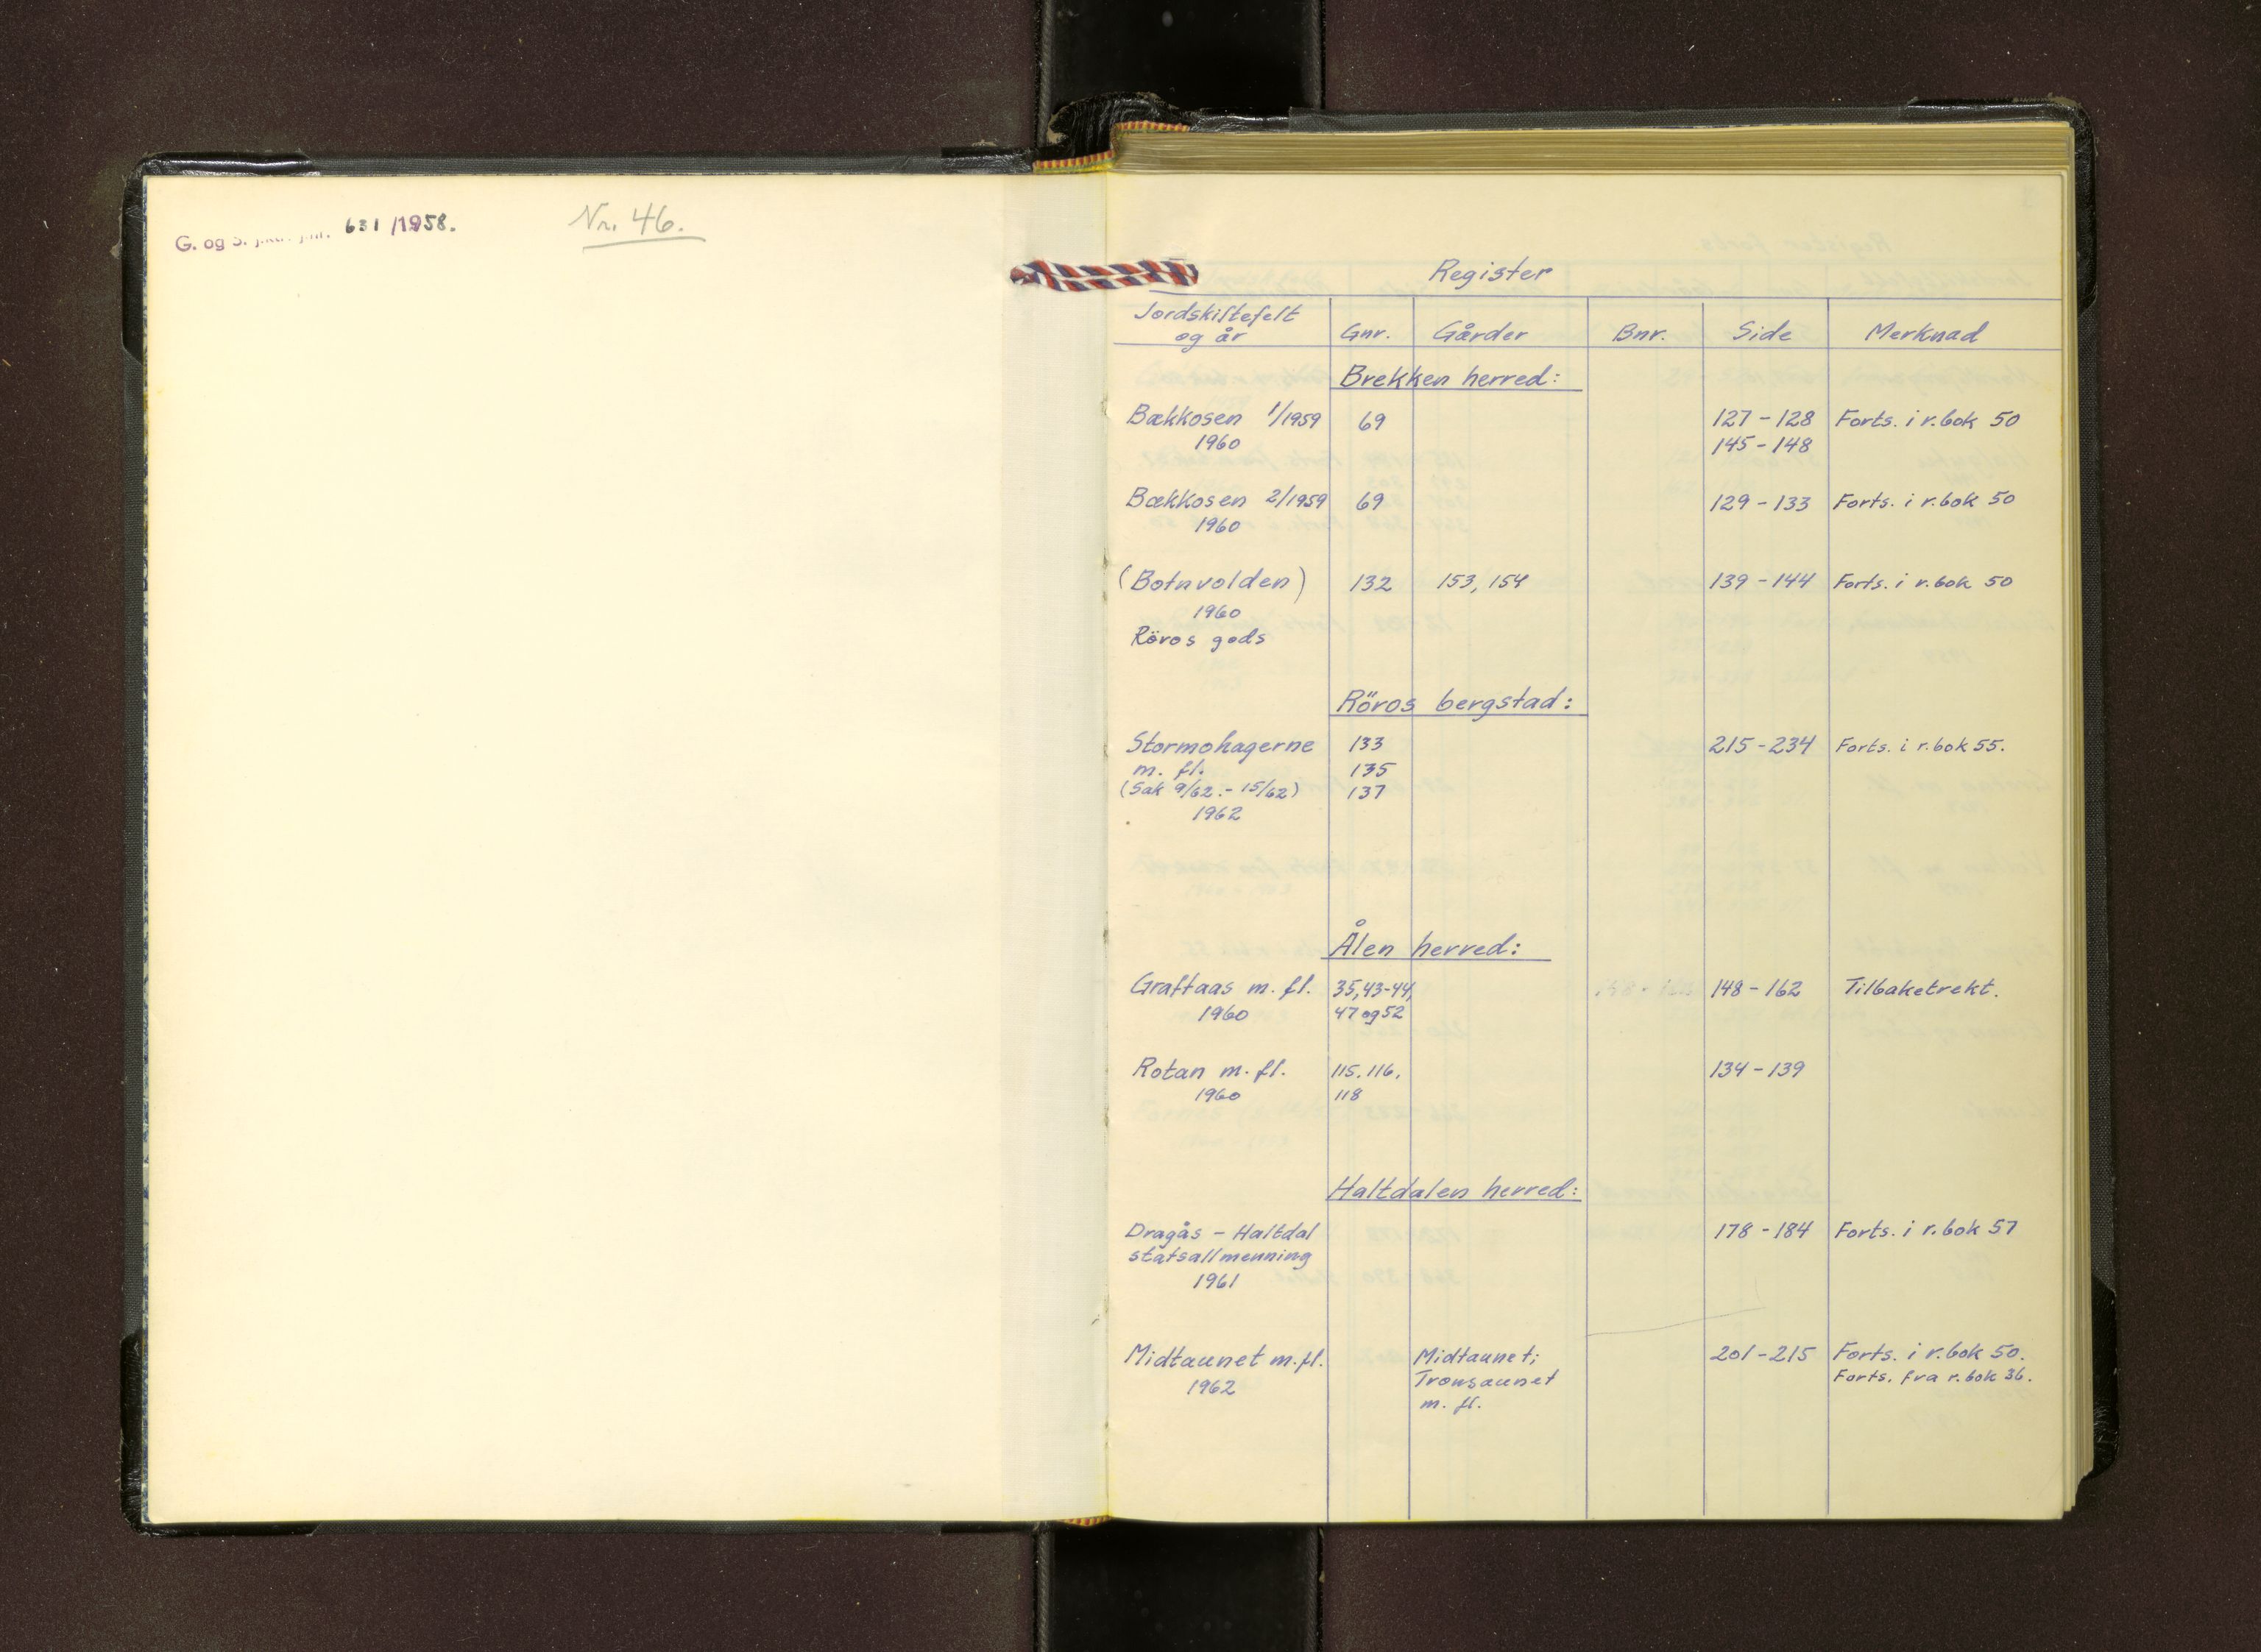 G. og S. 631/1958.
Nr. 46.
Register
Jordskiftefelt og år Gnr. Gårder Bnr. Side Merknad
Brekken herred:
Bækkosen 1/1959 69 127-128 Forts. i r.bok 50
1960 145-148
Bækkosen 2/1959 69 129-133 Forts. i r.bok 50
1960
(Botnvolden) 132 153, 154 139-144 Forts. i r.bok 50
1960
Röros gods
Röros bergstad:
Stormohagerne 133 215-234 Forts. i r.bok 55.
m. fl. 135
(Sak 9/62.-15/62) 137
1962
Ålen herred:
Graftaas m. fl. 35,43-44, 148-162 Tilbaketrekt.
1960 47 og 52
Rotan m. fl. 115. 116. 134-139
1960 118
Haltdalen herred:
Dragås - Haltdal 178-184 Forts. i r.bok 57
statsallmenning
1961
Midtaunet m.fl. Midtaunet; 201-215 Forts. i r.bok 50.
1962 Tronsaunet Forts. fra r.bok 36.
m. fl.